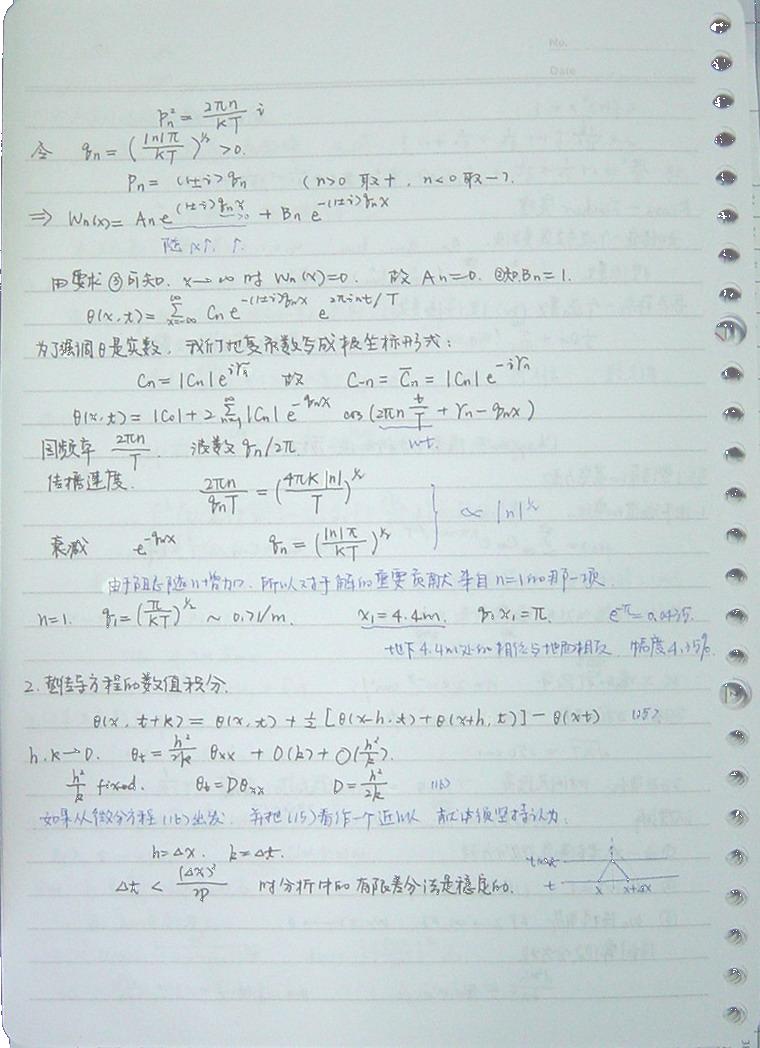 No.
Date
Pn² = 2πn/kT i
令 qn = (|n|π/kT)^½ >0.
Pn = (1±i)qn (n>0 取+, n<0 取-).
⇒ Wn(x) = An e^(1±i)qnx + Bn e^-(1±i)qnx
随x↑, ↑.
由要求③可知. x→∞ 时 Wn(x)=0. 故 An=0. ②知Bn=1.
θ(x,t) = Σ_{x=-∞}^{∞} Cn e^-(1±i)qnx e^2πint/T
为了强调θ是实数, 我们把复系数写成极坐标形式:
Cn = |Cn|e^iγn 故 C-n = C̄n = |Cn|e^-iγn
θ(x,t) = |C0| + 2 Σ_{n=1}^{∞} |Cn| e^-qnx cos(2πn t/T + γn - qnx)
wt.
圆频率 2πn/T 波数 qn/2π
传播速度. 2πn/qnT = (4πk|n|/T)^½
∝ |n|^½
衰减 e^-qnx qn = (|n|π/kT)^½
由于阻尼随n增加, 所以对于解的重要贡献来自n=1的那一项.
n=1. q1 = (π/kT)^½ ~ 0.71/m. x1 = 4.4m. q1x1 = π. e^-π = 0.0435.
地下4.4m处的相位与地面相反 幅度4.35%.
2. 热传导方程的数值积分.
θ(x, t+k) = θ(x,t) + ½[θ(x-h,t) + θ(x+h,t)] - θ(xt) (15)
h.k→0. θt = h²/2k θxx + O(k) + O(h⁴/k).
h²/k fixed. θt = Dθxx D = h²/2k (16)
如果从微分方程(16)出发. 并把(15)看作一个近似 就必须坚持认为.
h=Δx. k=Δt.
Δt < (Δx)²/2D 时分析中的有限差分法是稳定的.
t+Δt
t
x x+Δx